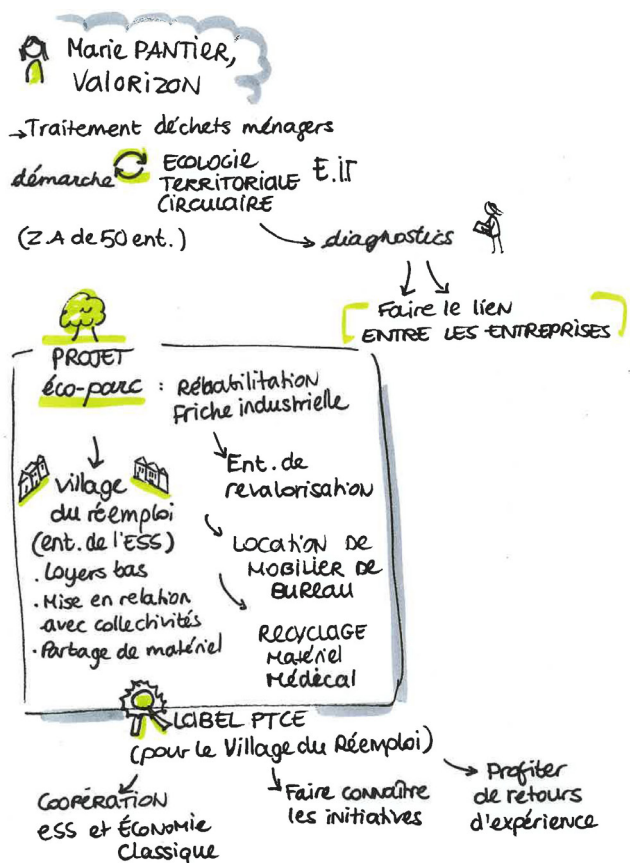 Marie PANTIER,
ValoRizon
→Traitement déchets ménagers
démarche ECOLOGIE E.iT
TERRITORIALE
CIRCULAIRE
(Z.A de 50 ent.)
diagnostics
Faire le lien
ENTRE LES ENTREPRISES
PROJET
éco-parc : Réhabilitation
Friche industrielle
Ent. de
revalorisation
village
du réemploi
(ent. de l'ESS)
. Loyers bas
. Mise en relation
avec collectivités
. Partage de matériel
LOCATION DE
MOBILIER DE
BUREAU
RECYCLAGE
Matériel
Médical
LABEL PTCE
(pour le Village du Réemploi)
COOPÉRATION
ESS et ÉCONOMIE
Classique
Faire connaître
les initiatives
Profiter
de retours
d'expérience